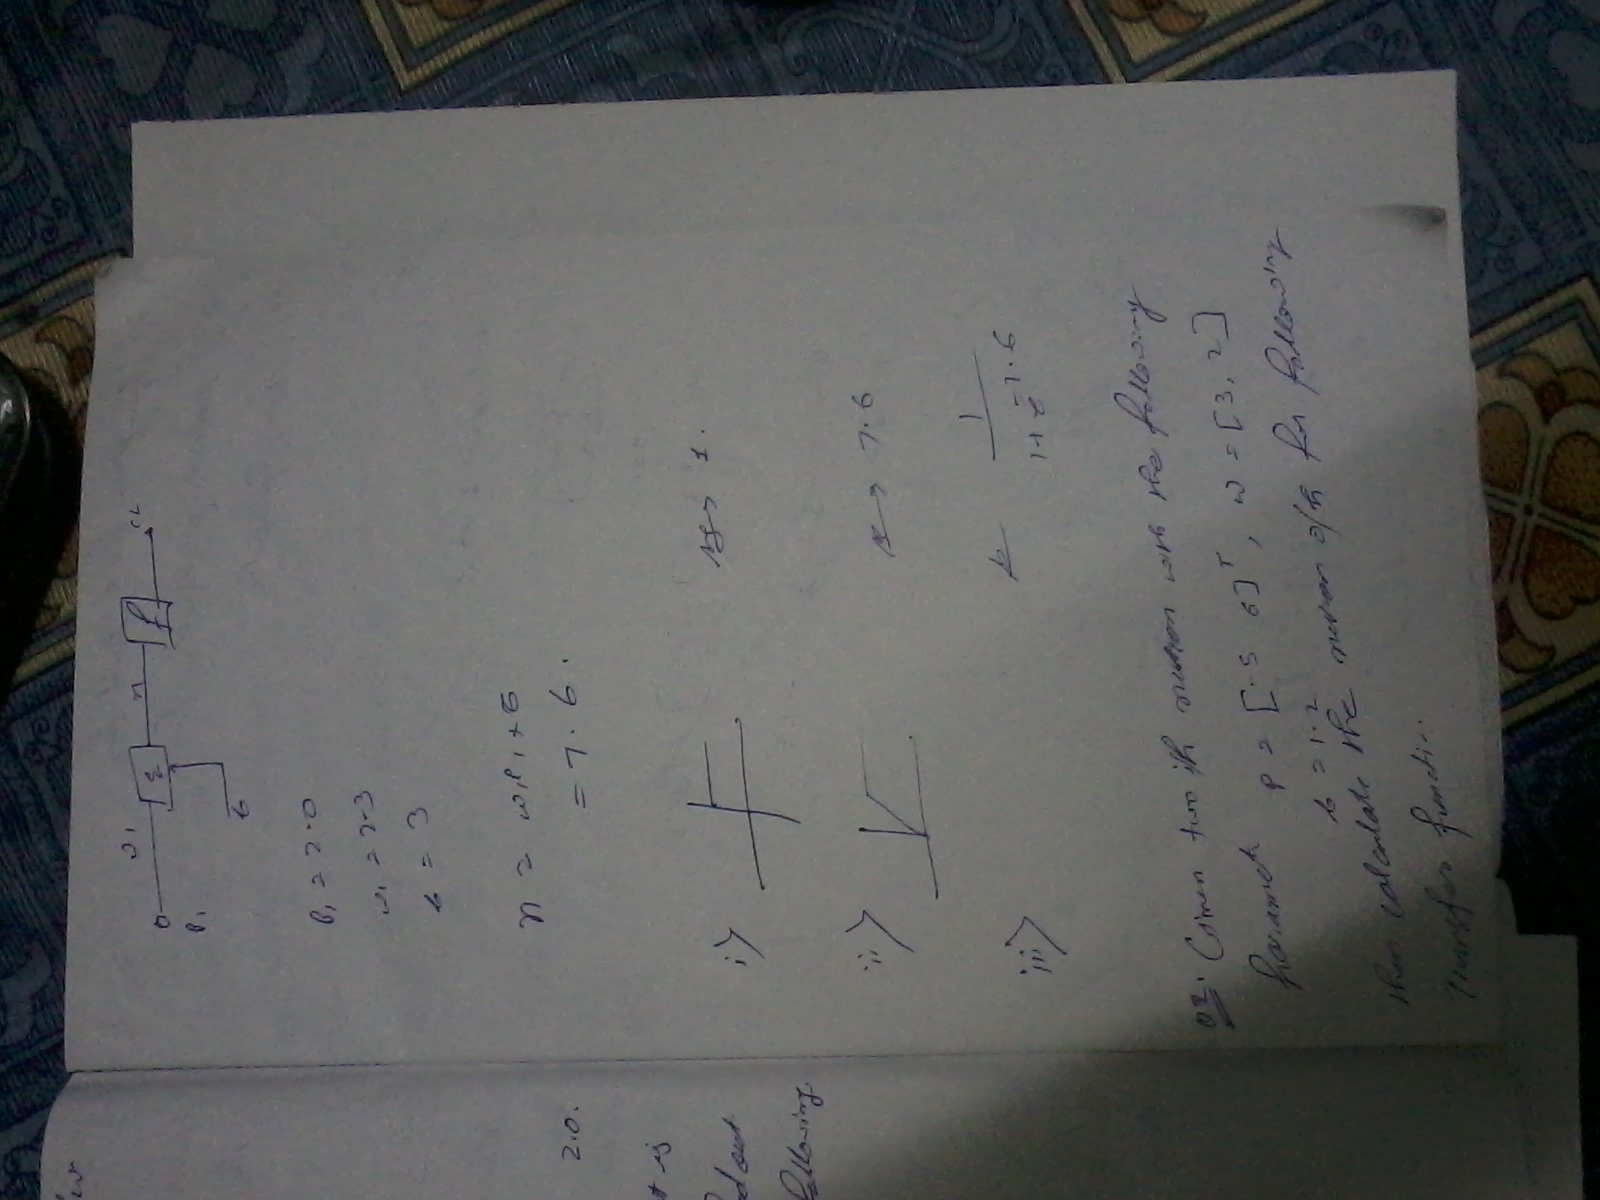 2.0.
t is
following
w1
Σ
n
f
p1
b
p1 = 2.0
w1 = 2.3
b = 3
n = w1p1 + b
= 7.6.
i> → 1.
ii> → 7.6
iii> 1
1+e-7.6
Q2. Given two i/p neuron with the following
p = [-5 6]T, w = [3, 2]
b = 1.2
then calculate the neuron o/p for following
transfer function.